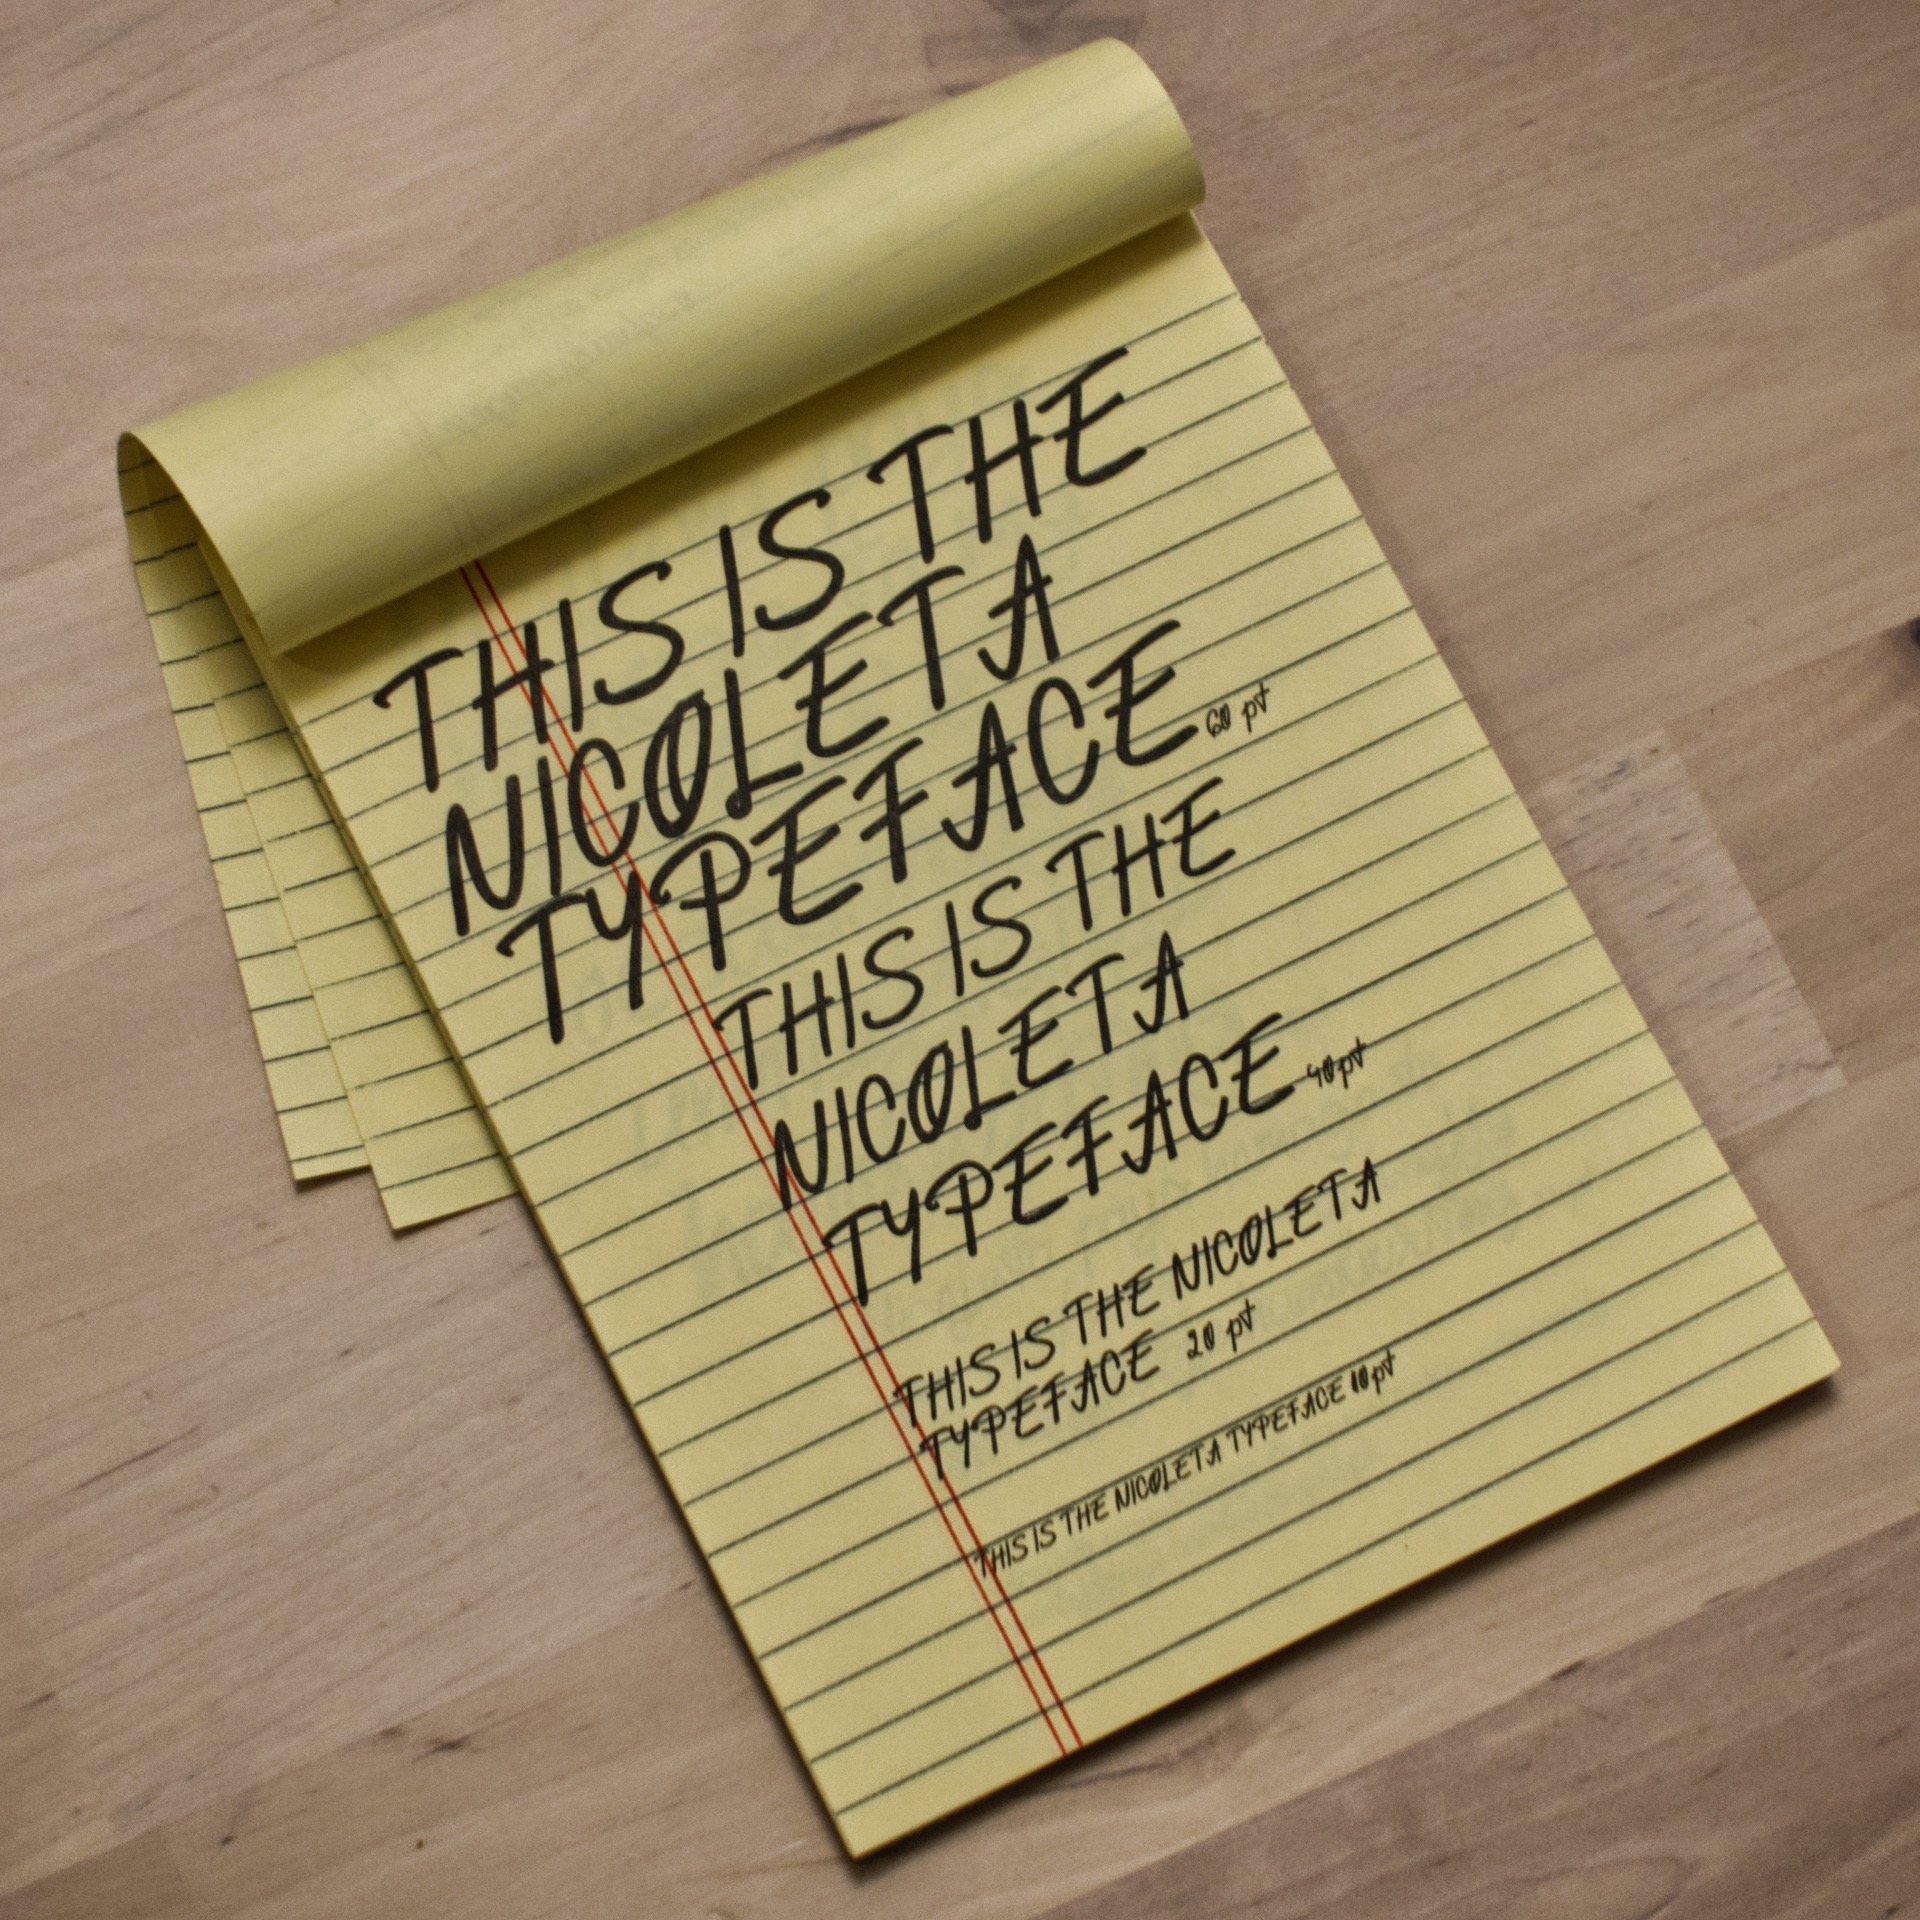 THIS IS THE
NICOLETA
TYPEFACE 60 pt
THIS IS THE
NICOLETA
TYPEFACE 40pt
THIS IS THE NICOLETA
TYPEFACE 20 pt
THIS IS THE NICOLETA TYPEFACE 10pt